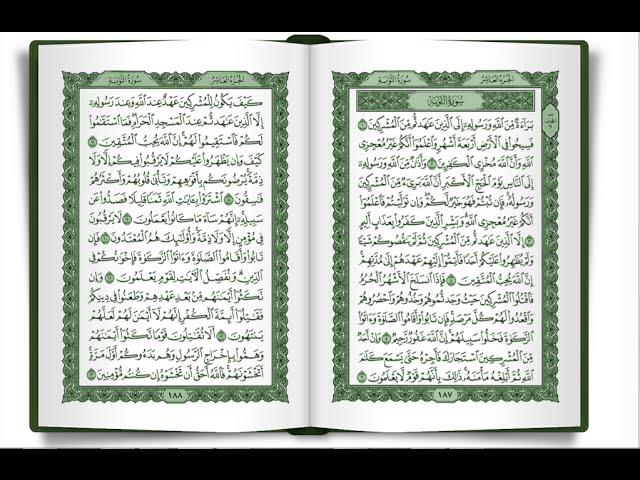 الجزء العاشر
سورة التوبة
سورة التوبة
بَرَآءَةٌ مِّنَ ٱللَّهِ وَرَسُولِهِۦٓ إِلَى ٱلَّذِينَ عَٰهَدتُّم مِّنَ ٱلْمُشْرِكِينَ ١
فَسِيحُوا۟ فِى ٱلْأَرْضِ أَرْبَعَةَ أَشْهُرٍ وَٱعْلَمُوٓا۟ أَنَّكُمْ غَيْرُ مُعْجِزِى
ٱللَّهِ وَأَنَّ ٱللَّهَ مُخْزِى ٱلْكَٰفِرِينَ ٢ وَأَذَٰنٌ مِّنَ ٱللَّهِ وَرَسُولِهِۦٓ
إِلَى ٱلنَّاسِ يَوْمَ ٱلْحَجِّ ٱلْأَكْبَرِ أَنَّ ٱللَّهَ بَرِىٓءٌ مِّنَ ٱلْمُشْرِكِينَ
وَرَسُولُهُۥ فَإِن تُبْتُمْ فَهُوَ خَيْرٌ لَّكُمْ وَإِن تَوَلَّيْتُمْ فَٱعْلَمُوٓا۟
أَنَّكُمْ غَيْرُ مُعْجِزِى ٱللَّهِ وَبَشِّرِ ٱلَّذِينَ كَفَرُوا۟ بِعَذَابٍ أَلِيمٍ
٣ إِلَّا ٱلَّذِينَ عَٰهَدتُّم مِّنَ ٱلْمُشْرِكِينَ ثُمَّ لَمْ يَنقُصُوكُمْ شَيْـًٔا
وَلَمْ يُظَٰهِرُوا۟ عَلَيْكُمْ أَحَدًا فَأَتِمُّوٓا۟ إِلَيْهِمْ عَهْدَهُمْ إِلَىٰ مُدَّتِهِمْ
إِنَّ ٱللَّهَ يُحِبُّ ٱلْمُتَّقِينَ ٤ فَإِذَا ٱنسَلَخَ ٱلْأَشْهُرُ ٱلْحُرُمُ
فَٱقْتُلُوا۟ ٱلْمُشْرِكِينَ حَيْثُ وَجَدتُّمُوهُمْ وَخُذُوهُمْ وَٱحْصُرُوهُمْ
وَٱقْعُدُوا۟ لَهُمْ كُلَّ مَرْصَدٍ فَإِن تَابُوا۟ وَأَقَامُوا۟ ٱلصَّلَوٰةَ وَءَاتَوُا۟
ٱلزَّكَوٰةَ فَخَلُّوا۟ سَبِيلَهُمْ إِنَّ ٱللَّهَ غَفُورٌ رَّحِيمٌ ٥ وَإِنْ أَحَدٌ
مِّنَ ٱلْمُشْرِكِينَ ٱسْتَجَارَكَ فَأَجِرْهُ حَتَّىٰ يَسْمَعَ كَلَٰمَ
ٱللَّهِ ثُمَّ أَبْلِغْهُ مَأْمَنَهُۥ ذَٰلِكَ بِأَنَّهُمْ قَوْمٌ لَّا يَعْلَمُونَ ٦
١٨٧
الجزء العاشر
سورة التوبة
كَيْفَ يَكُونُ لِلْمُشْرِكِينَ عَهْدٌ عِندَ ٱللَّهِ وَعِندَ رَسُولِهِۦٓ
إِلَّا ٱلَّذِينَ عَٰهَدتُّمْ عِندَ ٱلْمَسْجِدِ ٱلْحَرَامِ فَمَا ٱسْتَقَٰمُوا۟
لَكُمْ فَٱسْتَقِيمُوا۟ لَهُمْ إِنَّ ٱللَّهَ يُحِبُّ ٱلْمُتَّقِينَ ٧
كَيْفَ وَإِن يَظْهَرُوا۟ عَلَيْكُمْ لَا يَرْقُبُوا۟ فِيكُمْ إِلًّا وَلَا
ذِمَّةً يُرْضُونَكُم بِأَفْوَٰهِهِمْ وَتَأْبَىٰ قُلُوبُهُمْ وَأَكْثَرُهُمْ
فَٰسِقُونَ ٨ ٱشْتَرَوْا۟ بِـَٔايَٰتِ ٱللَّهِ ثَمَنًا قَلِيلًا فَصَدُّوا۟ عَن
سَبِيلِهِۦٓ إِنَّهُمْ سَآءَ مَا كَانُوا۟ يَعْمَلُونَ ٩ لَا يَرْقُبُونَ
فِى مُؤْمِنٍ إِلًّا وَلَا ذِمَّةً وَأُو۟لَٰٓئِكَ هُمُ ٱلْمُعْتَدُونَ ١٠ فَإِن
تَابُوا۟ وَأَقَامُوا۟ ٱلصَّلَوٰةَ وَءَاتَوُا۟ ٱلزَّكَوٰةَ فَإِخْوَٰنُكُمْ فِى
ٱلدِّينِ وَنُفَصِّلُ ٱلْءَايَٰتِ لِقَوْمٍ يَعْلَمُونَ ١١ وَإِن
نَّكَثُوٓا۟ أَيْمَٰنَهُم مِّنۢ بَعْدِ عَهْدِهِمْ وَطَعَنُوا۟ فِى دِينِكُمْ
فَقَٰتِلُوٓا۟ أَئِمَّةَ ٱلْكُفْرِ إِنَّهُمْ لَآ أَيْمَٰنَ لَهُمْ لَعَلَّهُمْ
يَنتَهُونَ ١٢ أَلَا تُقَٰتِلُونَ قَوْمًا نَّكَثُوٓا۟ أَيْمَٰنَهُمْ
وَهَمُّوا۟ بِإِخْرَاجِ ٱلرَّسُولِ وَهُم بَدَءُوكُمْ أَوَّلَ مَرَّةٍ
أَتَخْشَوْنَهُمْ فَٱللَّهُ أَحَقُّ أَن تَخْشَوْهُ إِن كُنتُم مُّؤْمِنِينَ ١٣
١٨٨